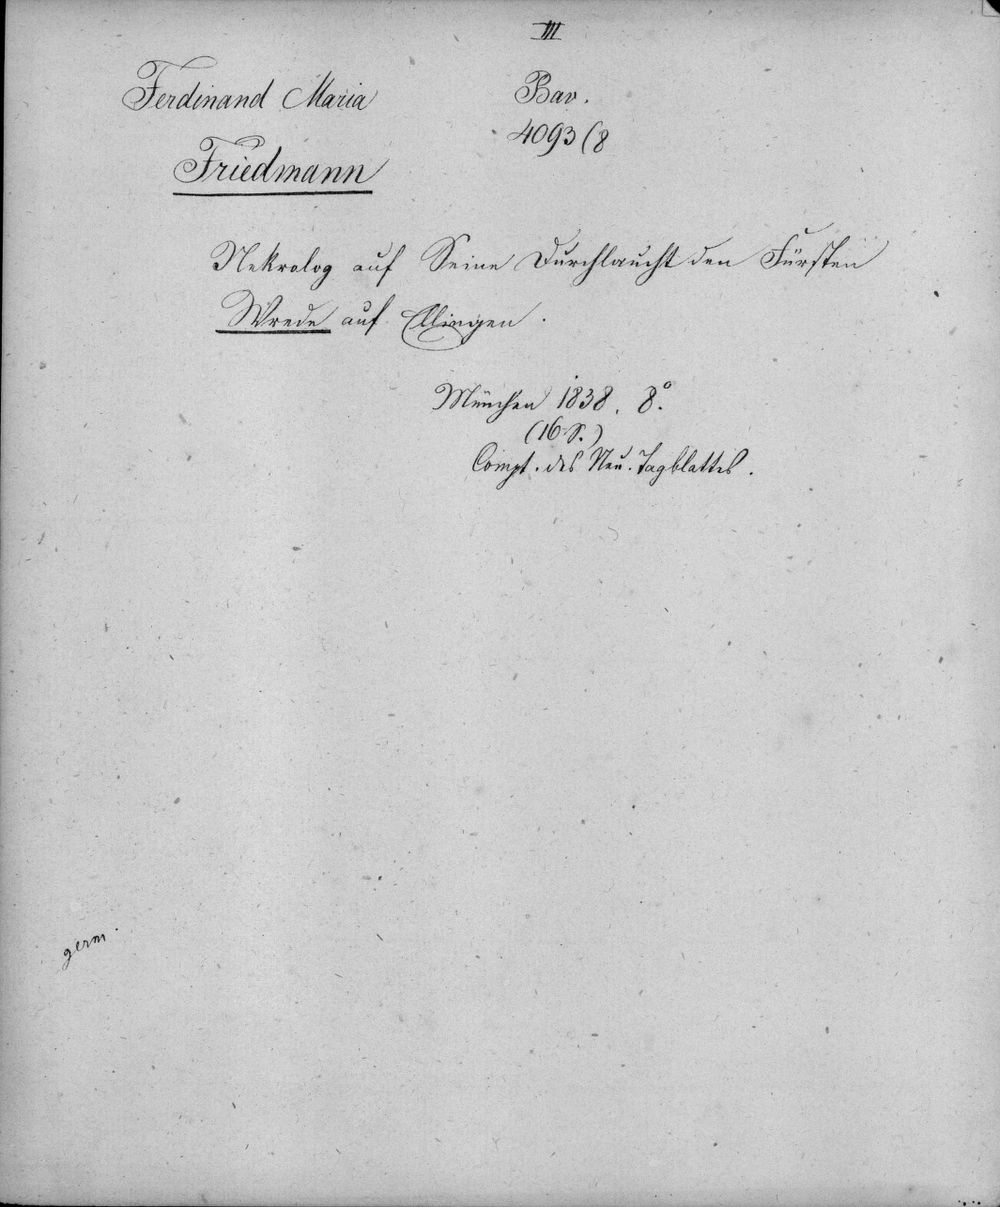 III
Ferdinand Maria
Bav.
4093 (8
Friedmann
Nekrolog auf Seine Durchlaucht den Fürsten
Wrede auf Ellingen.
München 1838. 8°.
(16 S.)
Compt. des Neu. Tagblattes.
germ.